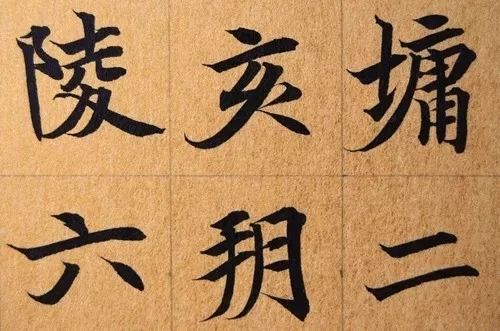 陵亥墉
六朔二